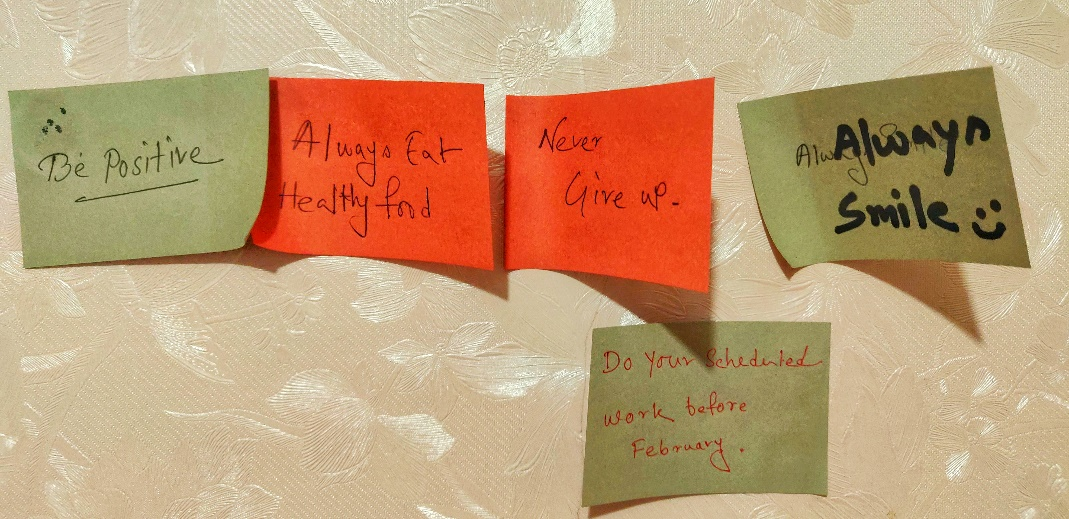 Be Positive
Always Eat
Healthy food
Never
Give up.
Always
Smile
Do Your Scheduled
work before
February.